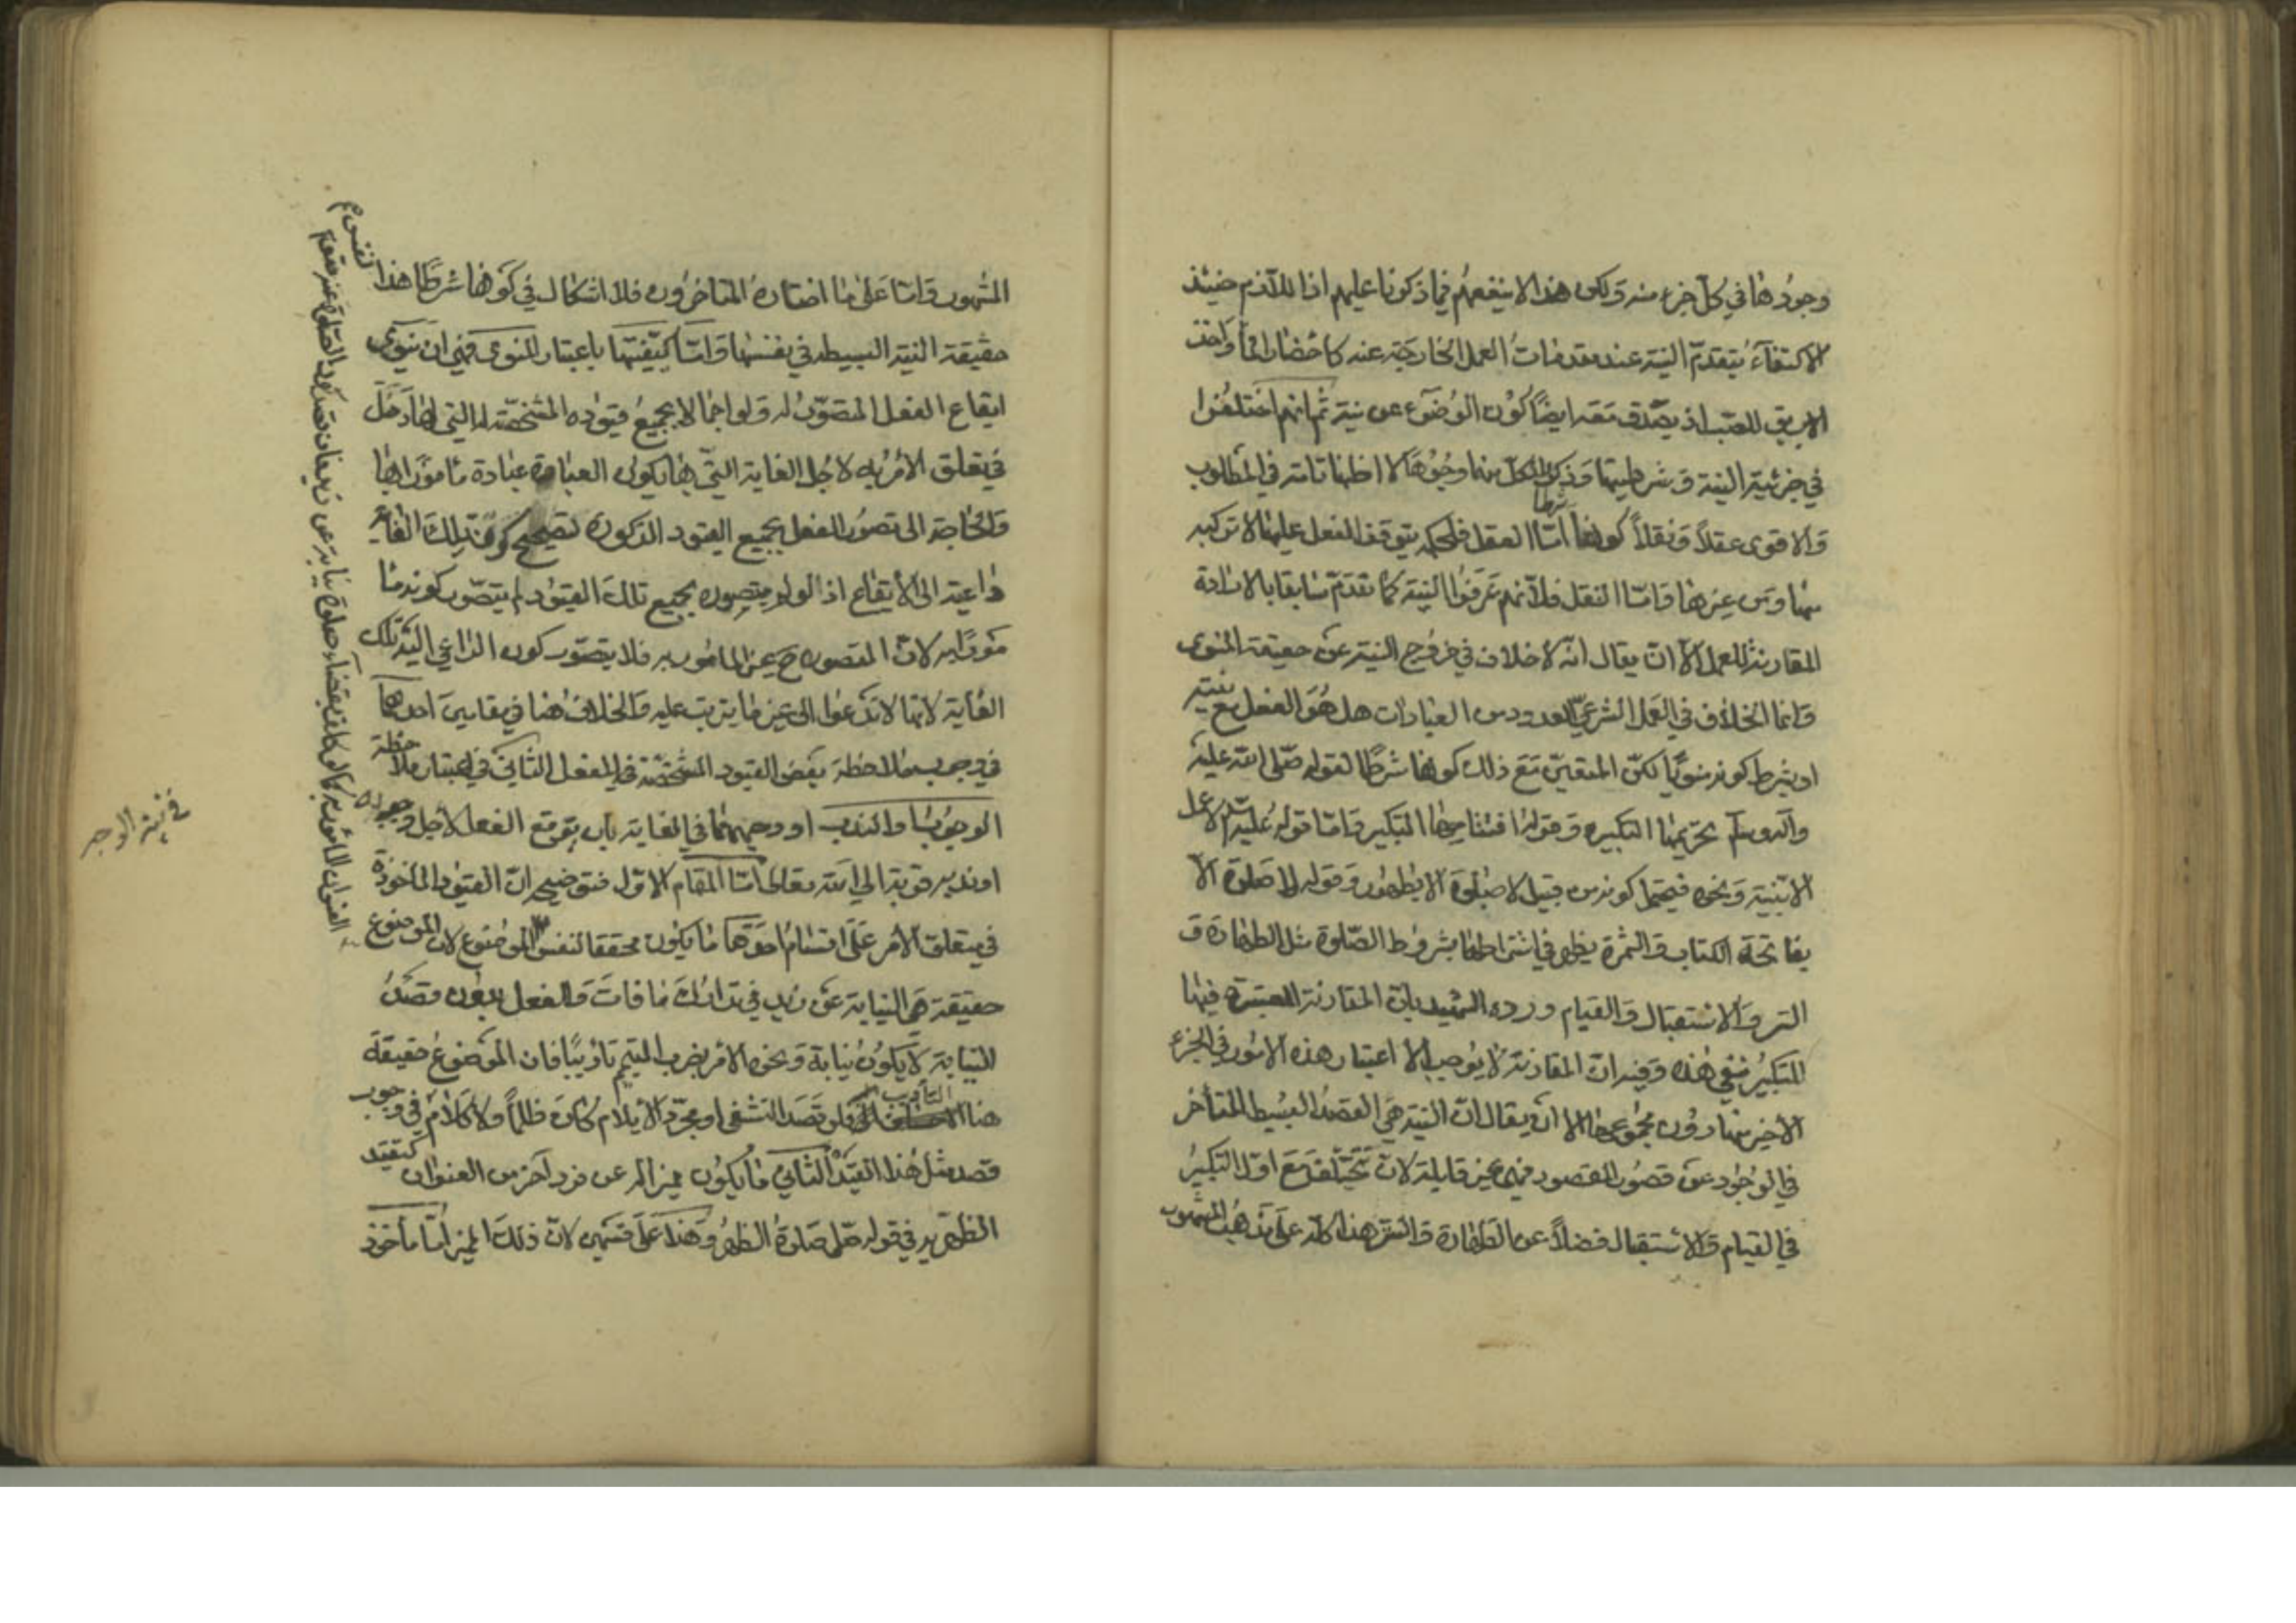 وجودها في كل جزء منه ولكن هذا لا ينفعهم فيما ذكرنا عليهم اذ اللازم حينئذ
الاكتفاء بتقدم النية عند مقدمات العمل الخارجة عنه كاحضار الماء واخذ
الابريق للصب اذ يصدق معه ايضا كون الوضوء عن نية ثم انهم اختلفوا
في جزئية النية وشرطيتها وذكروا لكل منها وجوها لا اظنها تامة في المطلوب
والاقوى عقلا ونقلا كونها شرطا اما العقل فلحكمه بتوقف الفعل عليها لا تركبه
منها ومن غيرها واما النقل فلانهم عرفوا النية كما تقدم سابقا بالارادة
المقارنة للعمل الا ان يقال انه لا خلاف في خروج النية عن حقيقة المنوى
وانما الخلاف في العمل الشرعي المعدود من العبادات هل هو الفعل مع نيته
او بشرط كونه منويا لكن المتعين مع ذلك كونها شرطا لقوله صلى الله عليه
وآله وسلم تحريمها التكبيرة وقوله افتتاحها التكبير واما قوله عليه السلام لا عمل
الا بنية ونحوه فيحتمل كونه من قبيل لا صلوة الا بطهور وقوله لا صلوة الا
بفاتحة الكتاب والثمرة يظهر في اشتراطها بشروط الصلوة مثل الطهارة و
الستر والاستقبال والقيام ورده الشهيد بان المقارنة المعتبرة فيها
للتكبير تنفي هذه وفيه ان المقارنة لا يوجب الا اعتبار هذه الامور في الجزء
الاخير منها دون مجموعها الا ان يقال ان النية هي القصد البسيط المتأخر
في الوجود عن تصور المقصود فهي غير قابلة لان تتخلف مع اول التكبير
في القيام والاستقبال فضلا عن الطهارة والستر هذا كله على مذهب المشهور
المشهور واما على ما اختاره المتاخرون فلا اشكال في كونها شرطا هذا
حقيقة النية البسيطه في نفسها واما كيفيتها باعتبار المنوى فهي ان ينوى
ايقاع الفعل المتصور له ولو اجمالا بجميع قيوده المشخصة له التي لها دخل
في تعلق الامر به لاجل الغاية التي بها يكون العبادة عبادة مامورا بها
والحاجة الى تصور الفعل بجميع القيود المذكورة لتصحيح كون تلك الغاية
داعية الى الايقاع اذ لو لم يتصوره بجميع تلك القيود لم يتصور كونه ما
مورا به لان المقصود ح غير المامور به فلا يتصور كون الداعي اليه تلك
الغاية لانها لا تدعوا الى غير ما يترتب عليه والخلاف هنا في مقامين احدهما
في وجوب ملاحظة بعض القيود المشخصة في الفعل الثاني في اعتبار ملاحظة
الوجوب والندب او وجههما في الغاية بان يوقع الفعل لاجل وجوبه
او ندبه قربة الى الله تعالى اما المقام الاول فتوضيحه ان القيود الماخوذة
في متعلق الامر على اقسام احدها ما يكون محققا لنفس الموضوع لان الموضوع
حقيقة هي النيابة عن زيد في تدارك ما فات والفعل بدون قصد
النيابة لا يكون نيابة ونحوه الامر بضرب اليتيم تاديبا فان الموضوع حقيقة
هنا التأديب فلو قصد التشفى او مجرد الايلام كان ظلما ولا كلام في وجوب
قصد مثل هذا القيد الثاني ما يكون مميزا له عن فرد آخر من العنوان كتقييد
الظهر به في قوله صل صلوة الظهر وهذا على قسمين لان ذلك المميز اما ماخوذ
نفس
العنوان المأمور به كما لو كلف بقضاء صلوة نيابة عن زيد فان قصد كون الصلوة عنه مقوم
في نية الوجه